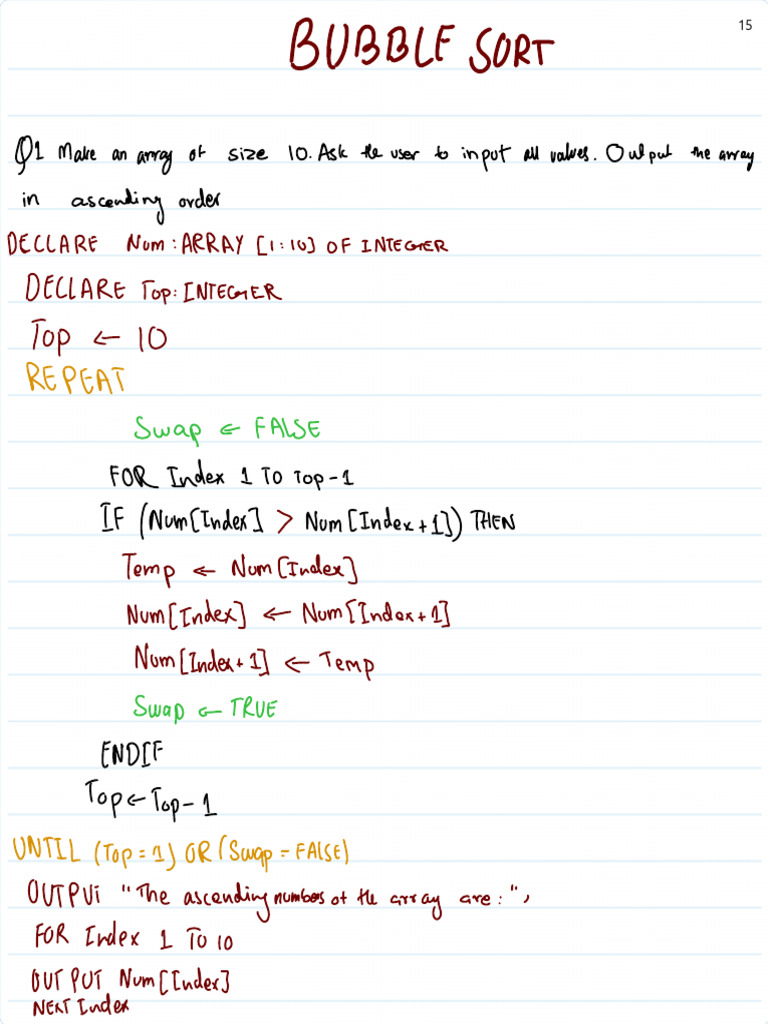 15
BUBBLE SORT
Q1 Make an array of size 10. Ask the user to input all values. Output the array
in ascending order
DECLARE Num : ARRAY [1:10] OF INTEGER
DECLARE Top: INTEGER
Top ← 10
REPEAT
Swap ← FALSE
FOR Index 1 TO Top-1
IF (Num[Index] > Num[Index+1]) THEN
Temp ← Num[Index]
Num[Index] ← Num[Index+1]
Num[Index+1] ← Temp
Swap ← TRUE
ENDIF
Top ← Top-1
UNTIL (Top = 1) OR (Swap = FALSE)
OUTPUT "The ascending numbers of the array are : ",
FOR Index 1 TO 10
OUTPUT Num[Index]
NEXT Index